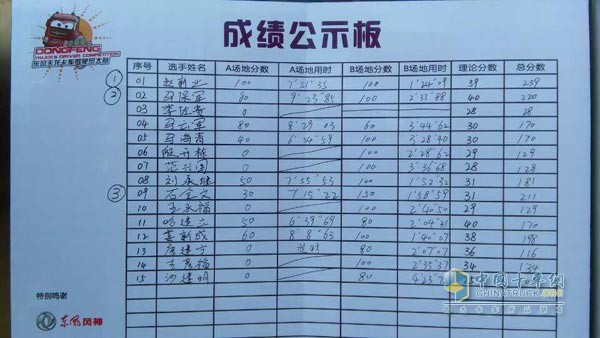 DONGFENG
TRUCKS DRIVER COMPETITION
东风天龙卡车驾驶员大赛
成绩公示板
序号 选手姓名 A场地分数 A场地用时 B场地分数 B场地用时 理论分数 总分数
① 01 赵新业 100 7'51"35 100 1'24"09 39 239
② 02 马保军 80 9'23"85 100 2'35"88 40 220
03 0 28 28
04 马云军 80 8'29"03 60 3'44"62 30 170
05 马海青 40 6'34"59 100 3'28"40 30 170
06 0 100 2'28"62 29 129
07 范兴国 0 100 3'36"68 28 128
08 刘永继 50 7'55"53 100 1'52"32 31 181
③ 09 30 7'15"22 150 1'58"59 31 211
10 王永福 0 100 2'40"50 29 129
11 哈建立 50 6'39"69 80 2'04"31 40 170
12 姜新成 60 8'8"63 100 1'40"07 38 198
13 0 超时 80 2'07"07 36 116
14 0 100 2'35"37 34 134
15 沙建明 0 80 4'23"
特别鸣谢
东风风神
中国卡车网
CHINATRUCK.COM